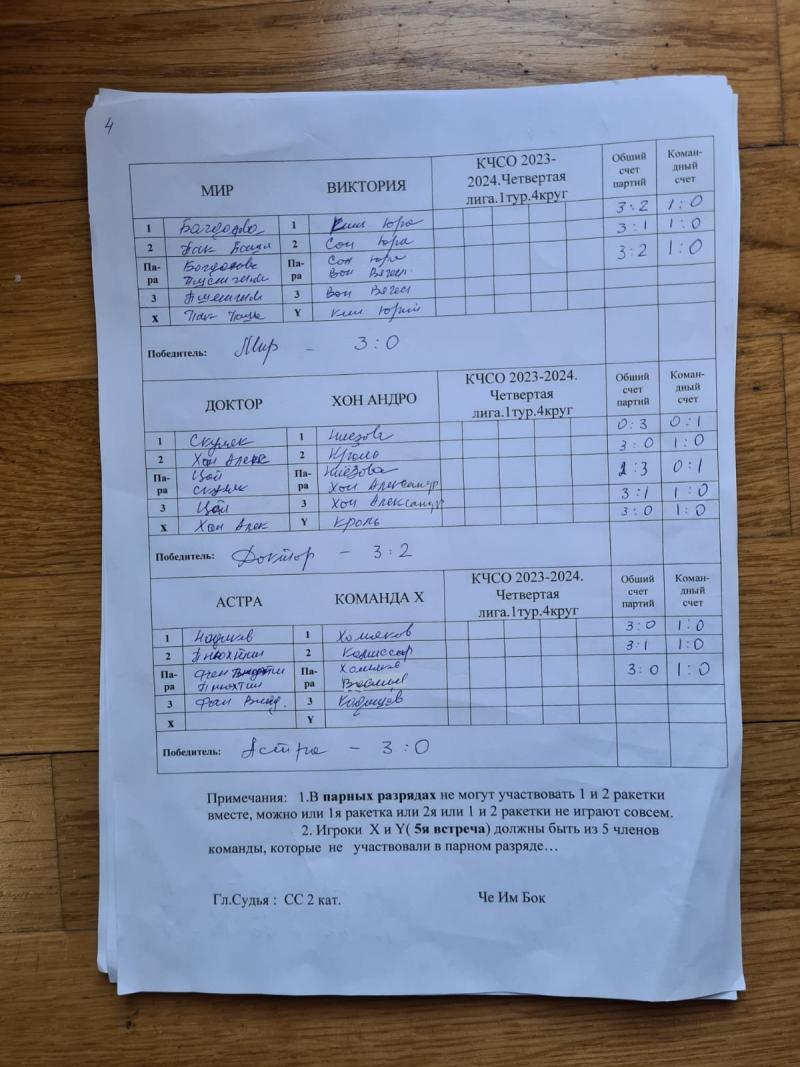 4
МИР ВИКТОРИЯ КЧСО 2023-2024.Четвертая лига.1тур.4круг Общий счет партий Коман-дный счет
1 1 Юра 3:2 1:0
2 Пак 2 Сон Юра 3:1 1:0
Па-ра Сон Юра 3:2 1:0
3 3
X Пак Y Ким Юрий
Победитель: Мир - 3:0
ДОКТОР ХОН АНДРО КЧСО 2023-2024. Четвертая лига.1тур.4круг Общий счет партий Коман-дный счет
1 1 0:3 0:1
2 Хон Алекс 2 3:0 1:0
Па-ра Цой Па-ра Ниезова :3 0:1
Хон Александр
3 Цой 3 Хон Александр 3:1 1:0
X Хон Алек Y Кроль 3:0 1:0
Победитель: Доктор - 3:2
АСТРА КОМАНДА X КЧСО 2023-2024. Четвертая лига.1тур.4круг Общий счет партий Коман-дный счет
1 1 Хомяков 3:0 1:0
2 Тнюхтин 2 Комиссар 3:1 1:0
Па-ра Па-ра 3:0 1:0
Тнюхтин
3 3
X Y
Победитель: Астра - 3:0
Примечания: 1.В парных разрядах не могут участвовать 1 и 2 ракетки
вместе, можно или 1я ракетка или 2я или 1 и 2 ракетки не играют совсем.
2. Игроки X и Y( 5я встреча) должны быть из 5 членов
команды, которые не участвовали в парном разряде…
Гл.Судья : СС 2 кат. Че Им Бок